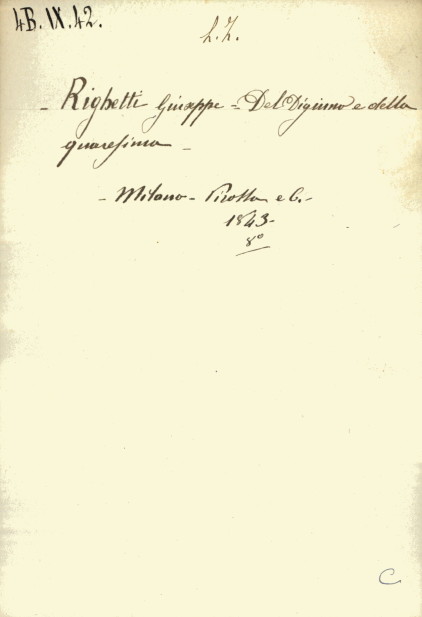 4B.IX.42.
L.Z.
- Righetti Giuseppe = Del Digiuno e della
quaresima -
- Milano - Pirotta e C. -
1843 -
8º
C